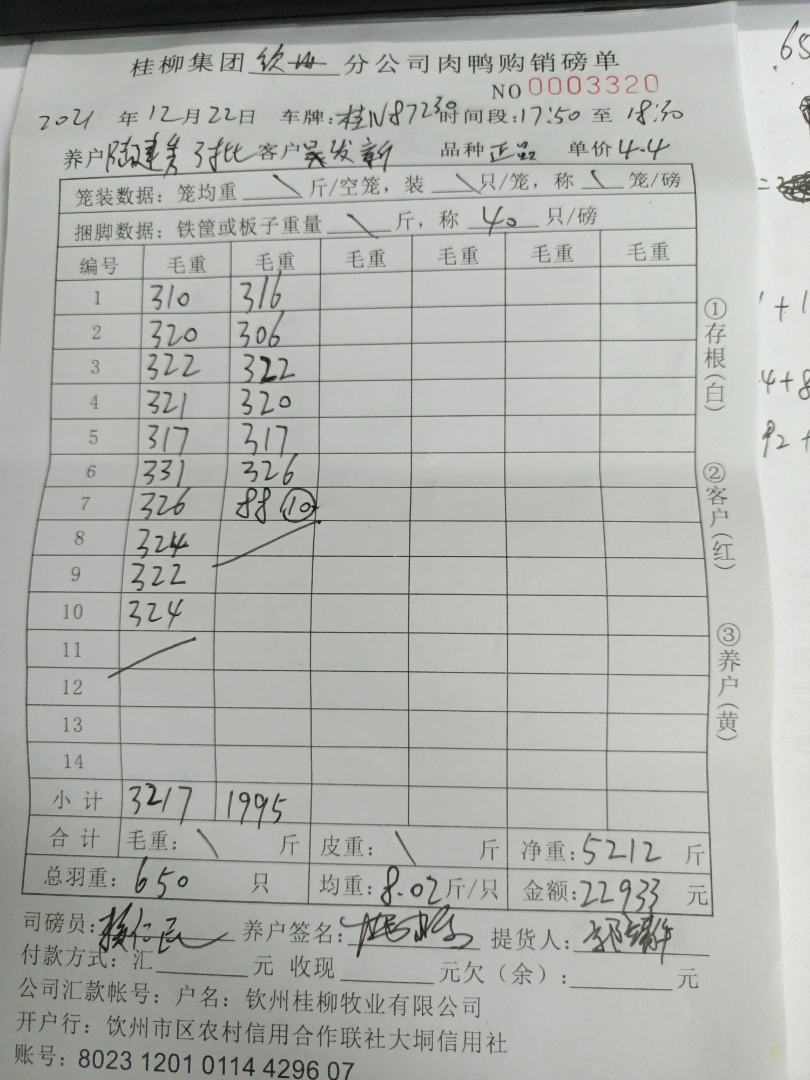 桂柳集团钦州分公司肉鸭购销磅单
NO 0003320
2021年12月22日 车牌:桂N87230 时间段:17:50至18:30
养户 对批 客户吴发新 品种正品 单价4.4
笼装数据:笼均重\斤/空笼,装\只/笼,称\笼/磅
捆脚数据:铁筐或板子重量\斤,称40只/磅
编号 毛重 毛重 毛重 毛重 毛重 毛重
1 310 316
2 320 306
3 322 322
4 321 320
5 317 317
6 331 326
7 326 88 ⑩
8 324
9 322
10 324
11
12
13
14
小计 3217 1995
合计 毛重:\斤 皮重:\斤 净重:5212斤
总羽重:650只 均重:8.02斤/只 金额:22933元
司磅员: 养户签名: 提货人:
付款方式:汇 元 收现 元欠(余): 元
公司汇款帐号:户名:钦州桂柳牧业有限公司
开户行:饮州市区农村信用合作联社大垌信用社
账号:8023 1201 0114 4296 07
①存根(白)
②客户(红)
③养户(黄)